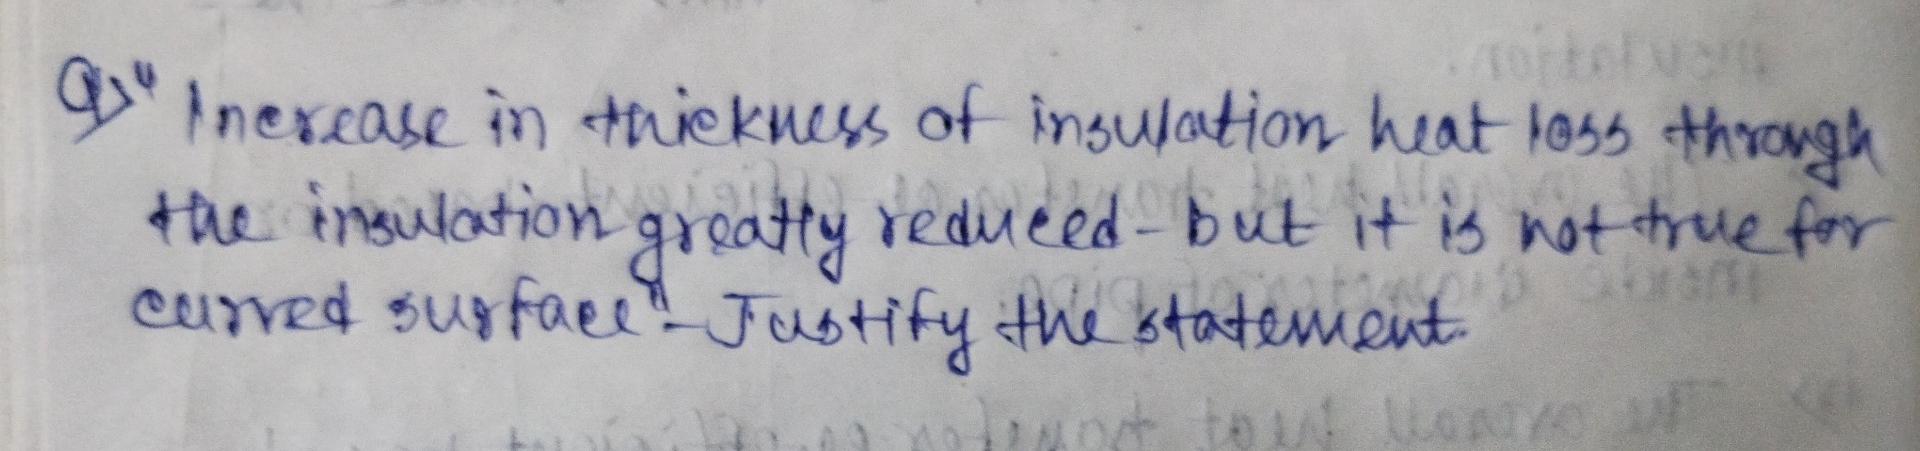 Q>" Increase in thickness of insulation heat loss through
the insulation greatly reduced - but it is not true for
curved surface" - Justify the statement.